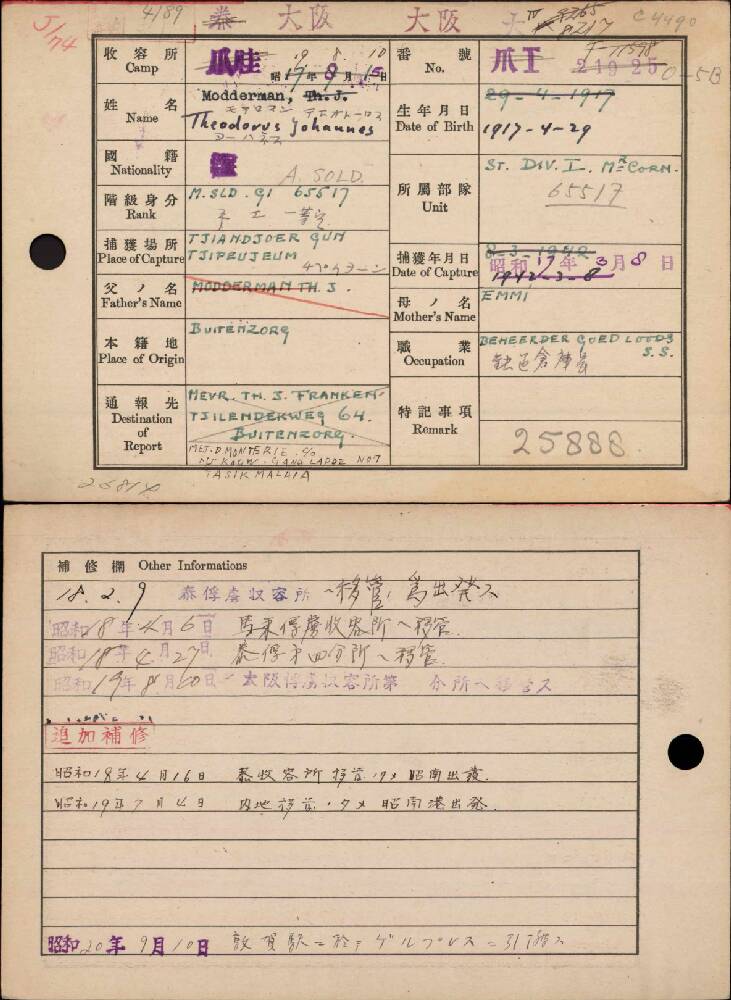 4189 大阪 大阪 8265 C4490
J/74 8217
F-11598
0-5B
收容所 Camp 爪哇 19 8 10
昭17年9月15日
番號 No. 爪I 21925
姓名 Name Modderman, Th.J.
モデルマン テオオトールス
Theodorus Johannes
ヨーハネス
生年月日 Date of Birth 29-4-1917
1917-4-29
國籍 Nationality A. SOLD.
階級身分 Rank M.SLD. GI 65517
手工 一等兵
所屬部隊 Unit ST. DIV. I. MR CORN.
65517
捕獲場所 Place of Capture TJIANDJOER GUN
TJIPEUJEUM
捕獲年月日 Date of Capture 8-3-1942
昭和17年3月8日
1942-3-8
父ノ名 Father's Name MODDERMAN TH. J.
母ノ名 Mother's Name EMMI
本籍地 Place of Origin BUITENZORG
職業 Occupation BEHEERDER GOED LOODS
S.S.
通報先 Destination of Report MEVR. TH. J. FRANKEN-
TJILENDEKWEG 64.
BUITENZORG.
MET. D. MONTERIE. c/o
GANG LAPDZ No 7
TASIKMALAIA
特記事項 Remark 25888
補修欄 Other Informations
18.2.9 泰俘虜收容所へ移管ノ爲出発ス
昭和18年4月6日 馬来俘虜收容所へ移管.
昭和18年4月27日 泰俘第四分所へ移管.
昭和19年8月10日 大阪俘虜収容所第 分所へ移管ス
追加補修
昭和18年4月16日 泰收容所移管ノタメ昭南出發.
昭和19年7月4日 内地移管ノタメ昭南港出発.
昭和20年9月10日 敦賀駅ニ於テゲルプレスニ引渡ス